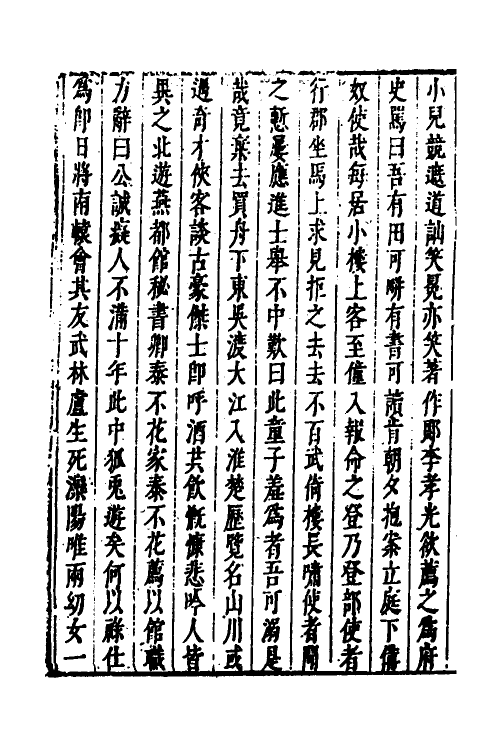 小兒競遮道訕笑冕亦笑著作郎李孝光欲薦之爲府
史罵曰吾有田可畊有書可讀肯朝夕抱案立庭下備
奴使哉每居小樓上客至僮入報命之登乃登部使者
行郡坐馬上求見拒之去去不百武倚樓長嘯使者聞
之慙屢應進士舉不中歎曰此童子羞爲者吾可溺是
哉竟棄去買舟下東吳渡大江入淮楚歷覽名山川或
遇奇才俠客談古豪傑士即呼酒共飲慨慷悲吟人皆
異之北遊燕都館秘書卿泰不花家泰不花薦以館職
力辭曰公誠癡人不滿十年此中狐兎遊矣何以祿仕
爲即日將南轅會其友武林盧生死灤陽唯兩幼女一